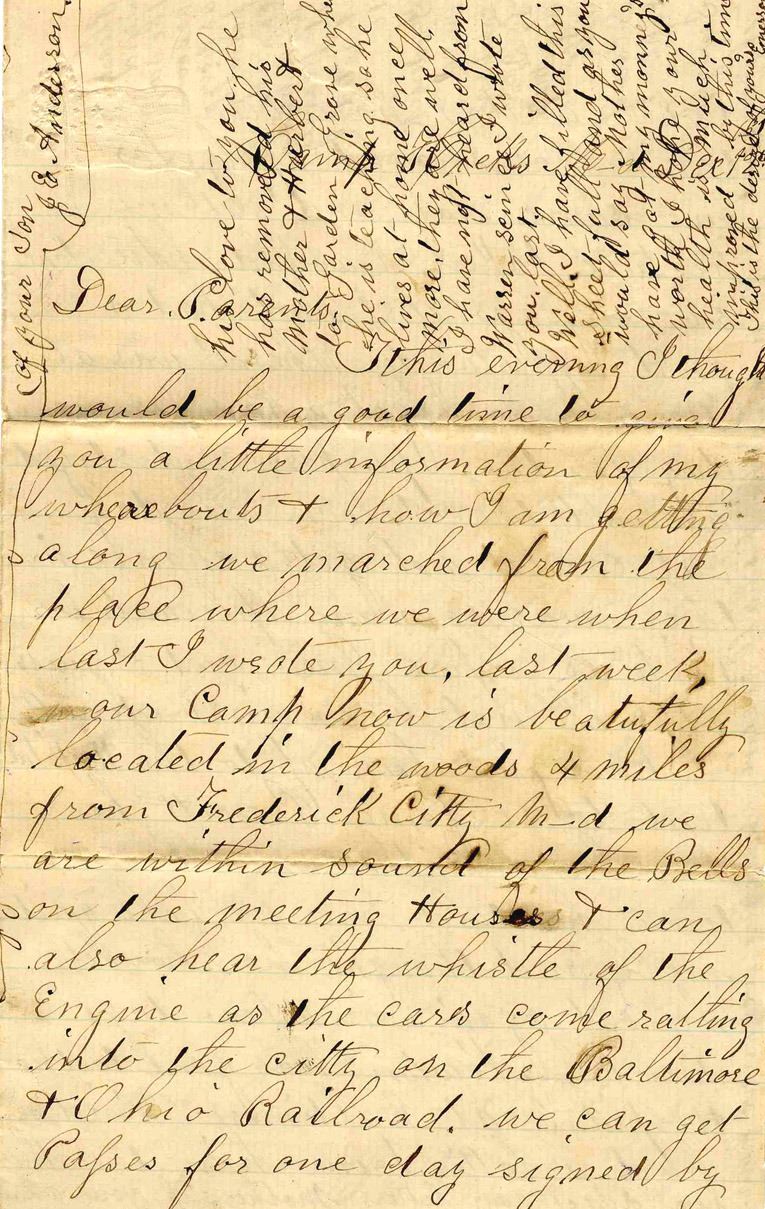 Camp Hicks
Dear Parents,
This evening I though
would be a good time to give
you a little information of my
whereabouts & how I am getting
along we marched from the
place where we were when
last I wrote you, last week,
our Camp now is beatutfully
located in the woods 4 miles
from Frederick Citty M-d we
are within sound of the Bells
on the meeting Houses & can
also hear the whistle of the
Engine as the cars come ratling
into the citty on the Baltimore
& Ohio Railroad. we can get
Passes for one day signed by
his love to you, he
has removed his
Mother & Herbert
to Garden Grove whe
he is teaching so he
lives at home once
more, they are well.
I have not heard from
Warren sein ce I wrote
you last
Well I have filled this
sheet full and as you
would say Mother
have got my moneys
worth I hope your
health is much
improved by this time
this is the desire of yours
of your Son
J E Anderson.